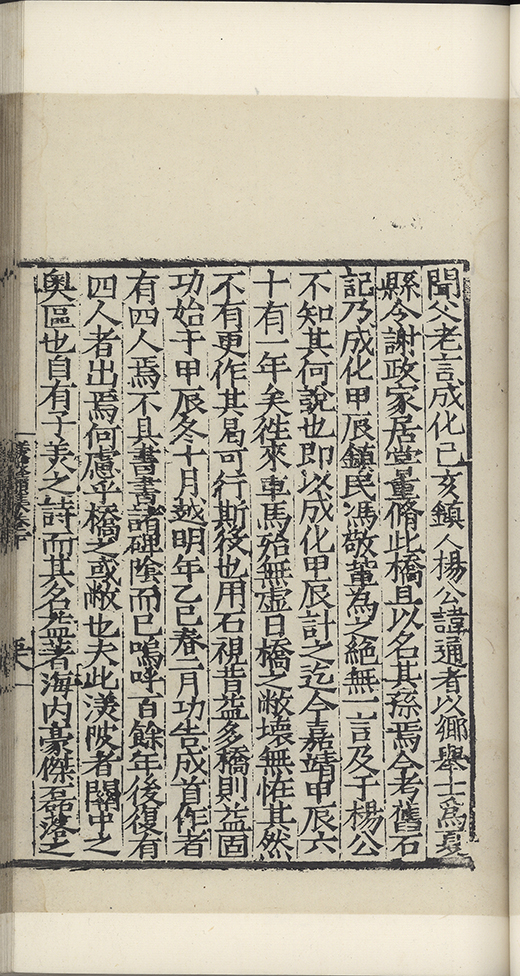 聞父老言成化己亥鎮人楊公諱通者以鄉舉士爲夏
縣令謝政家居嘗重脩此橋且以名其孫焉今考舊石
記乃成化甲辰鎮民馮敬軰為之絕無一言及于楊公
不知其何說也即以成化甲辰計之迄今嘉靖甲辰六
十有一年矣徃來車馬殆無虛日橋之敝壞無恠其然
不有更作其曷可行斯役也用石視昔益多橋則益固
功始于甲辰冬十月越明年乙巳春二月功告成首作者
有四人焉不具書書諸碑隂而已嗚呼百餘年後復有
四人者出焉何慮乎橋之或敝也夫此渼陂者關中之
奥區也自有子美之詩而其名益著海内豪傑磊落之